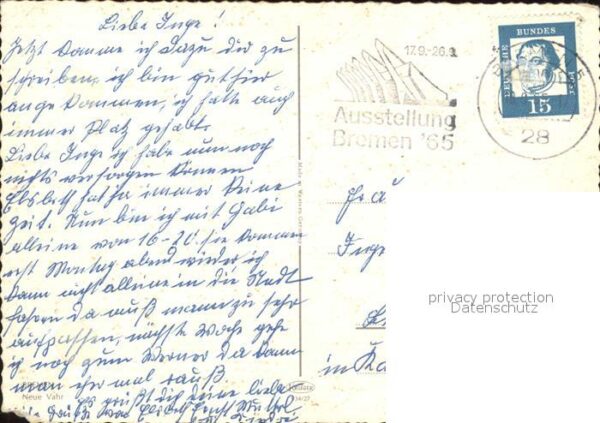 Liebe Inge!
Jetzt komme ich dazu dir zu
schreiben, ich bin gut hir
ange kommen, ich hatte auch
immer Platz gehabt.
Liebe Inge ich habe nun noch
nichts versorgen können
Elsbeth hat ja immer keine
Zeit. Nun bin ich mit Gabi
alleine von 16-20. sie kommen
erst Montag abend wieder ich
kann nicht alleine in die Stadt
fahren da muß mann zu sehr
aufpassen, nächste Woche gehe
ich noch zum Werner da kann
man eher mal rauß
es grüßt dich deine liebe
Neue Vahr
17.9.-26.9.
Ausstellung
Bremen '65
DEUTSCHE BUNDES POST
15
28
Frau
Inge
in Ka
privacy protection
Datenschutz